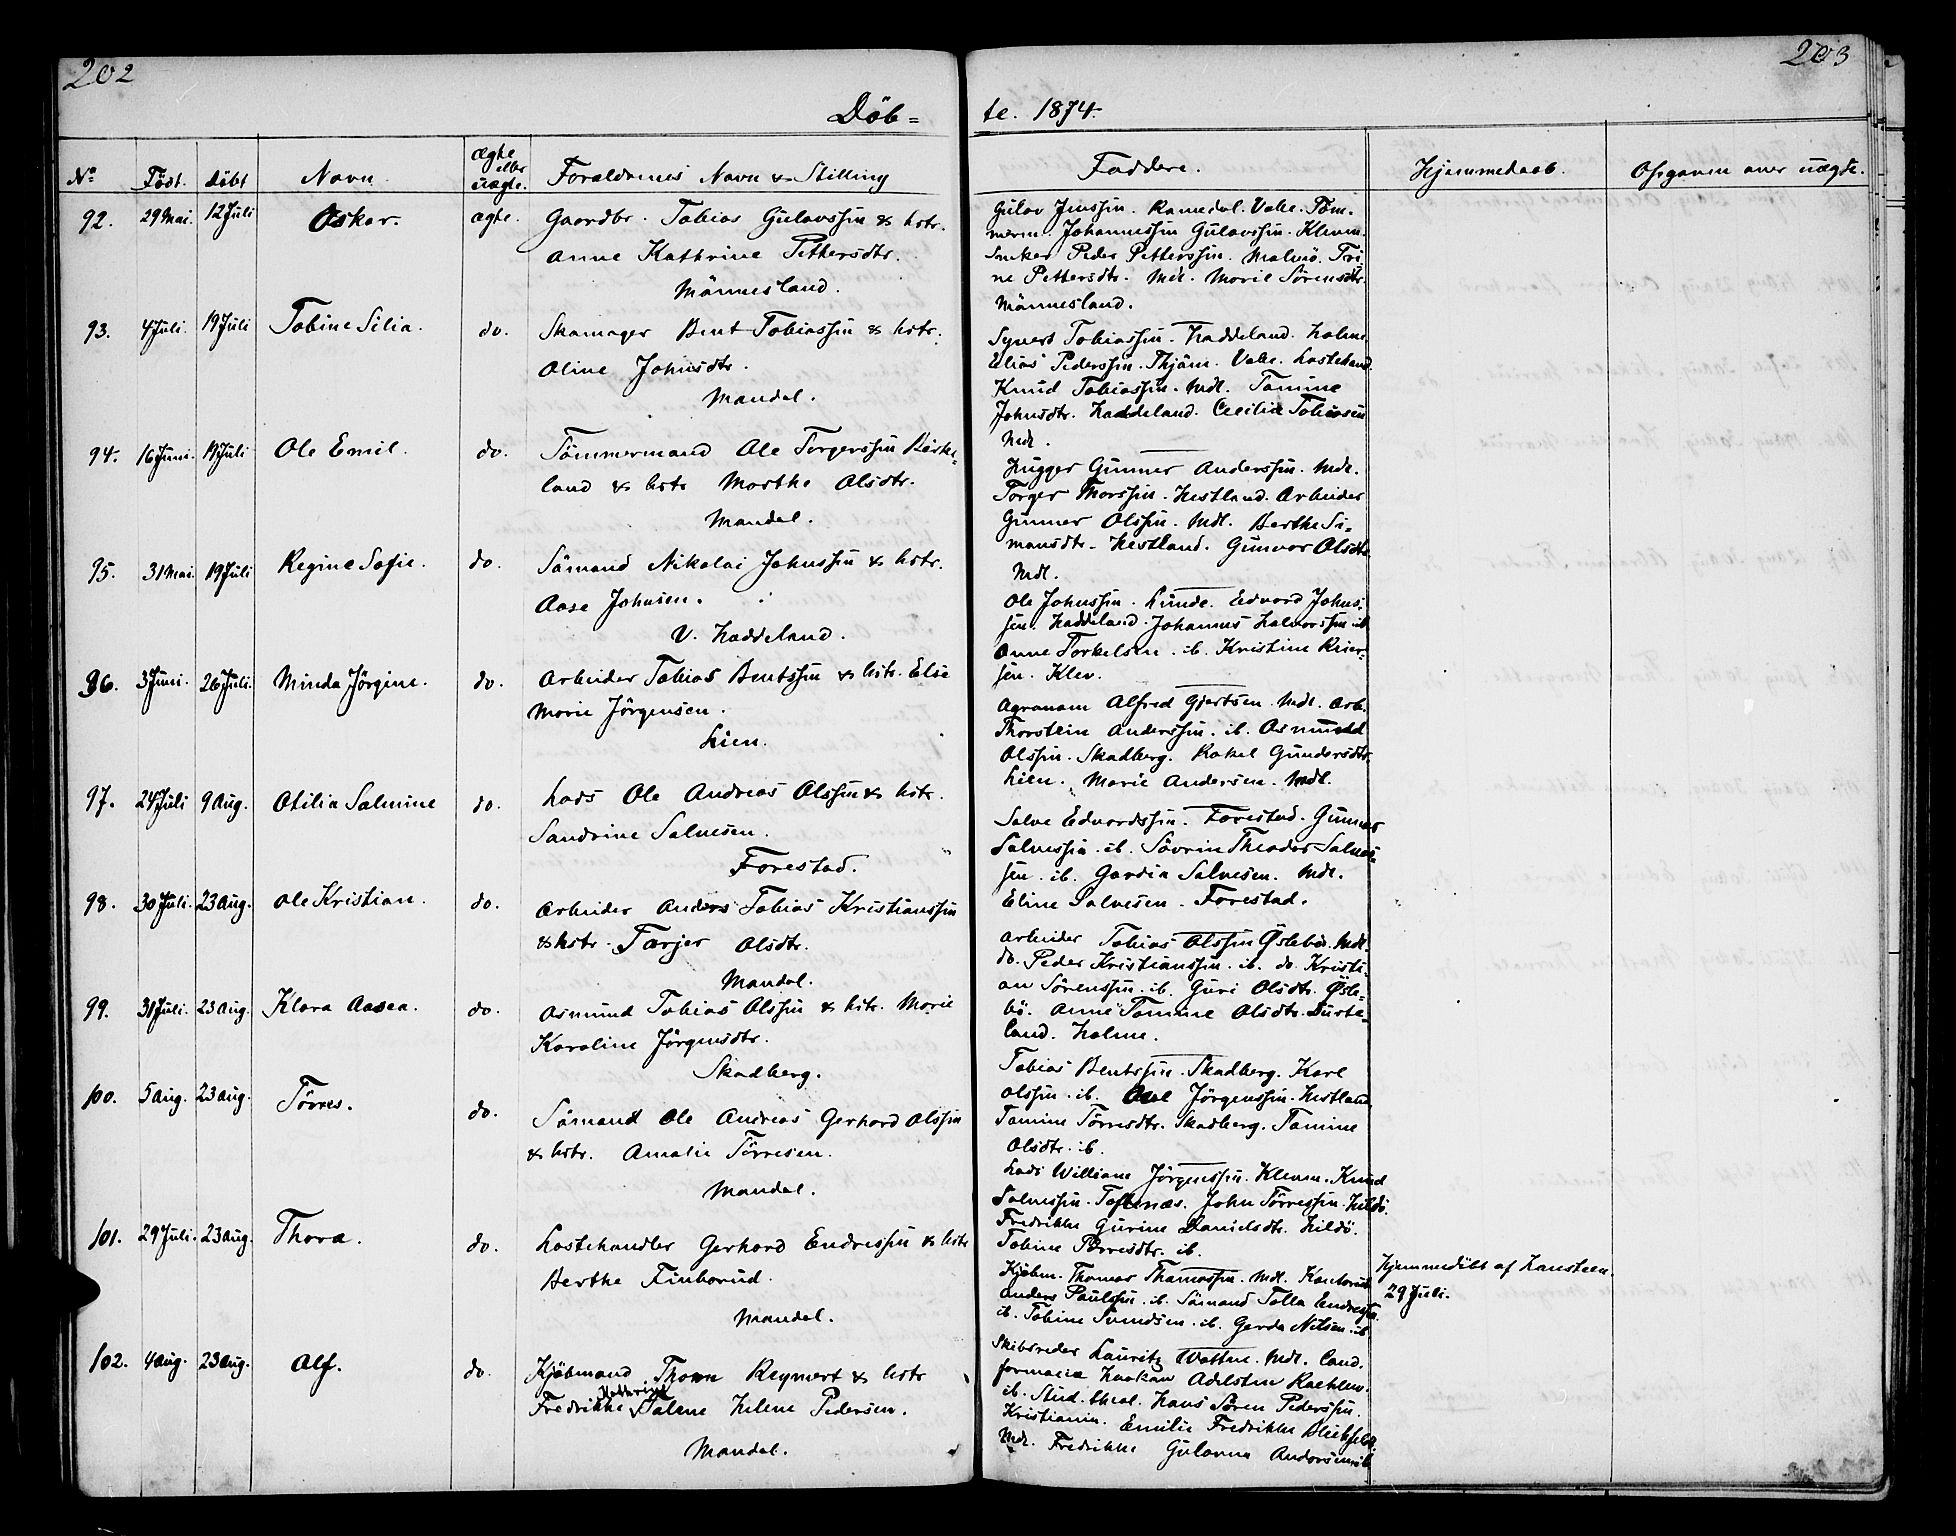 202
203
Döb=
te. 1874.
No
Födt.
Döbt
Navn.
ægte eller uægte.
Forældrenes Navn & Stilling
Faddere.
Hjemmedaab.
Opgaven over uægte.
92. 29 Mai. 12 Juli Oskar. ægte. Gaardbr. Tobias Gulovssön & hstr.
Anne Kathrine Pettersdtr.
Männesland.
Gulov Jenssön. Ramedal. Valle. Töm-
merm. Johannessön Gulovssön. Klevm.
Sneker Peder Petterssön. Malmö. Tri-
ne Pettersdtr. Mdl. Marie Sörensdtr.
Männesland.
93. 4 Juli. 19 Juli Tobine Silia. do. Skomager Bent Tobiassön & hstr.
Oline Johnsdtr.
Mandal.
Syvert Tobiassön. Haddeland. Holme.
Elias Pederssön. Thjöm. Valle.
Knud Tobiassön. Mdl. Tomine
Johnsdtr. Haddeland. Cecilia Tobiasen
Mdl.
94. 16 Juni. 19 Juli Ole Emil. do. Tömmermand Ole Torgerssön Birke-
land & hstr Marthe Olsdtr.
Mandal.
Hugger Gunner Anderssön. Mdl.
Torger Thorssön. Hestland. Arbeider
Gunner Olssön. Mdl. Berthe Si-
monsdtr. Hestland. Gunvor Olsdtr
Mdl.
95. 31 Mai. 19 Juli Regine Sofie. do. Sömand Nikolai Johnssön & hstr.
Aase Johnsen.
V. Haddeland.
Ole Johnssön. Lunde. Edvard Johns-
sön. Haddeland. Johannes Halvorssön ib.
Anne Torkelsen. ib. Kristine Reier-
sen. Klev.
96. 3 Juni. 26 Juli. Minda Jörgine. do. Arbeider Tobias Bentssön & hstr. Else
Marie Jörgensen.
Lien.
Agronom Alfred Gjertsen. Mdl. Arb.
Thorstein Anderssön. ib. Osmund
Olssön. Skadberg. Rakel Gundersdtr.
Lien. Marie Andersen. Mdl.
97. 24 Juli 9 Aug. Otilia Salmine do. Lods Ole Andreas Olssön & hstr.
Sandrine Salvesen.
Forestad.
Salve Edvardssön. Forestad. Gunner
Salvessön. ib. Sövrin Theodor Salves-
sön. ib. Gardia Salvesen. Mdl.
Eline Salvesen. Forestad.
98. 30 Juli. 23 Aug. Ole Kristian. do. Arbeider Anders Tobias Kristianssön
& hstr. Tarjer Olsdtr.
Mandal.
Arbeider Tobias Olssön Öslebö. Mdl.
do. Peder Kristianssön. ib. do. Kristi-
an Sörenssön. ib. Guri Olsdtr. Ösle-
bö. Anne Tomine Olsdtr.
land. Holme.
99. 31 Juli. 23 Aug. Klara Aasea. do. Osmund Tobias Olssön & hstr. Marie
Karoline Jörgensdtr.
Skadberg.
Tobias Bentssön. Skadberg. Karl
Olssön. ib. Jörgenssön. Hestland
Tomine Törresdtr. Skadberg. Tomine
Olsdtr. ib.
100. 5 Aug. 23 Aug. Törres. do. Sömand Ole Andreas Gerhard Olssön
& hstr. Amalie Törresen.
Mandal.
Lods William Jörgenssön. Klevm. Knud
Salvessön. Toftenæs. John Törressön. Hildö.
Fredrikke Gurine Danielsdtr. Hildö.
Tobine Törresdtr. ib.
101. 29 Juli. 23 Aug. Thora. do. Lostehandler Gerhard Endressön & hstr
Berthe Finborud.
Mandal.
Kjöbm. Thomas Thomassön. Mdl. Kontorist
Anders Paulssön. ib. Sömand Tolla Endressön.
ib. Tobine Svendsen. ib. Gerda Nilsen. ib.
Hjemmedöbt af Hansteen.
29 Juli.
102. 4 Aug. 23 Aug. Alf. do. Kjöbmand Thorn Reymert & hstr
Kathrine
Fredrikke Talene Helene Pedersen.
Mandal.
Skibsreder Lauritz Wattne. Mdl. Cand.
farmacia Haakon Adelsten
ib. Stud. theol. Hans Sören Pederssön.
Kristiania. Emilie Fredrikke
Mdl. Fredrikke Gulovna Andorsen. ib.